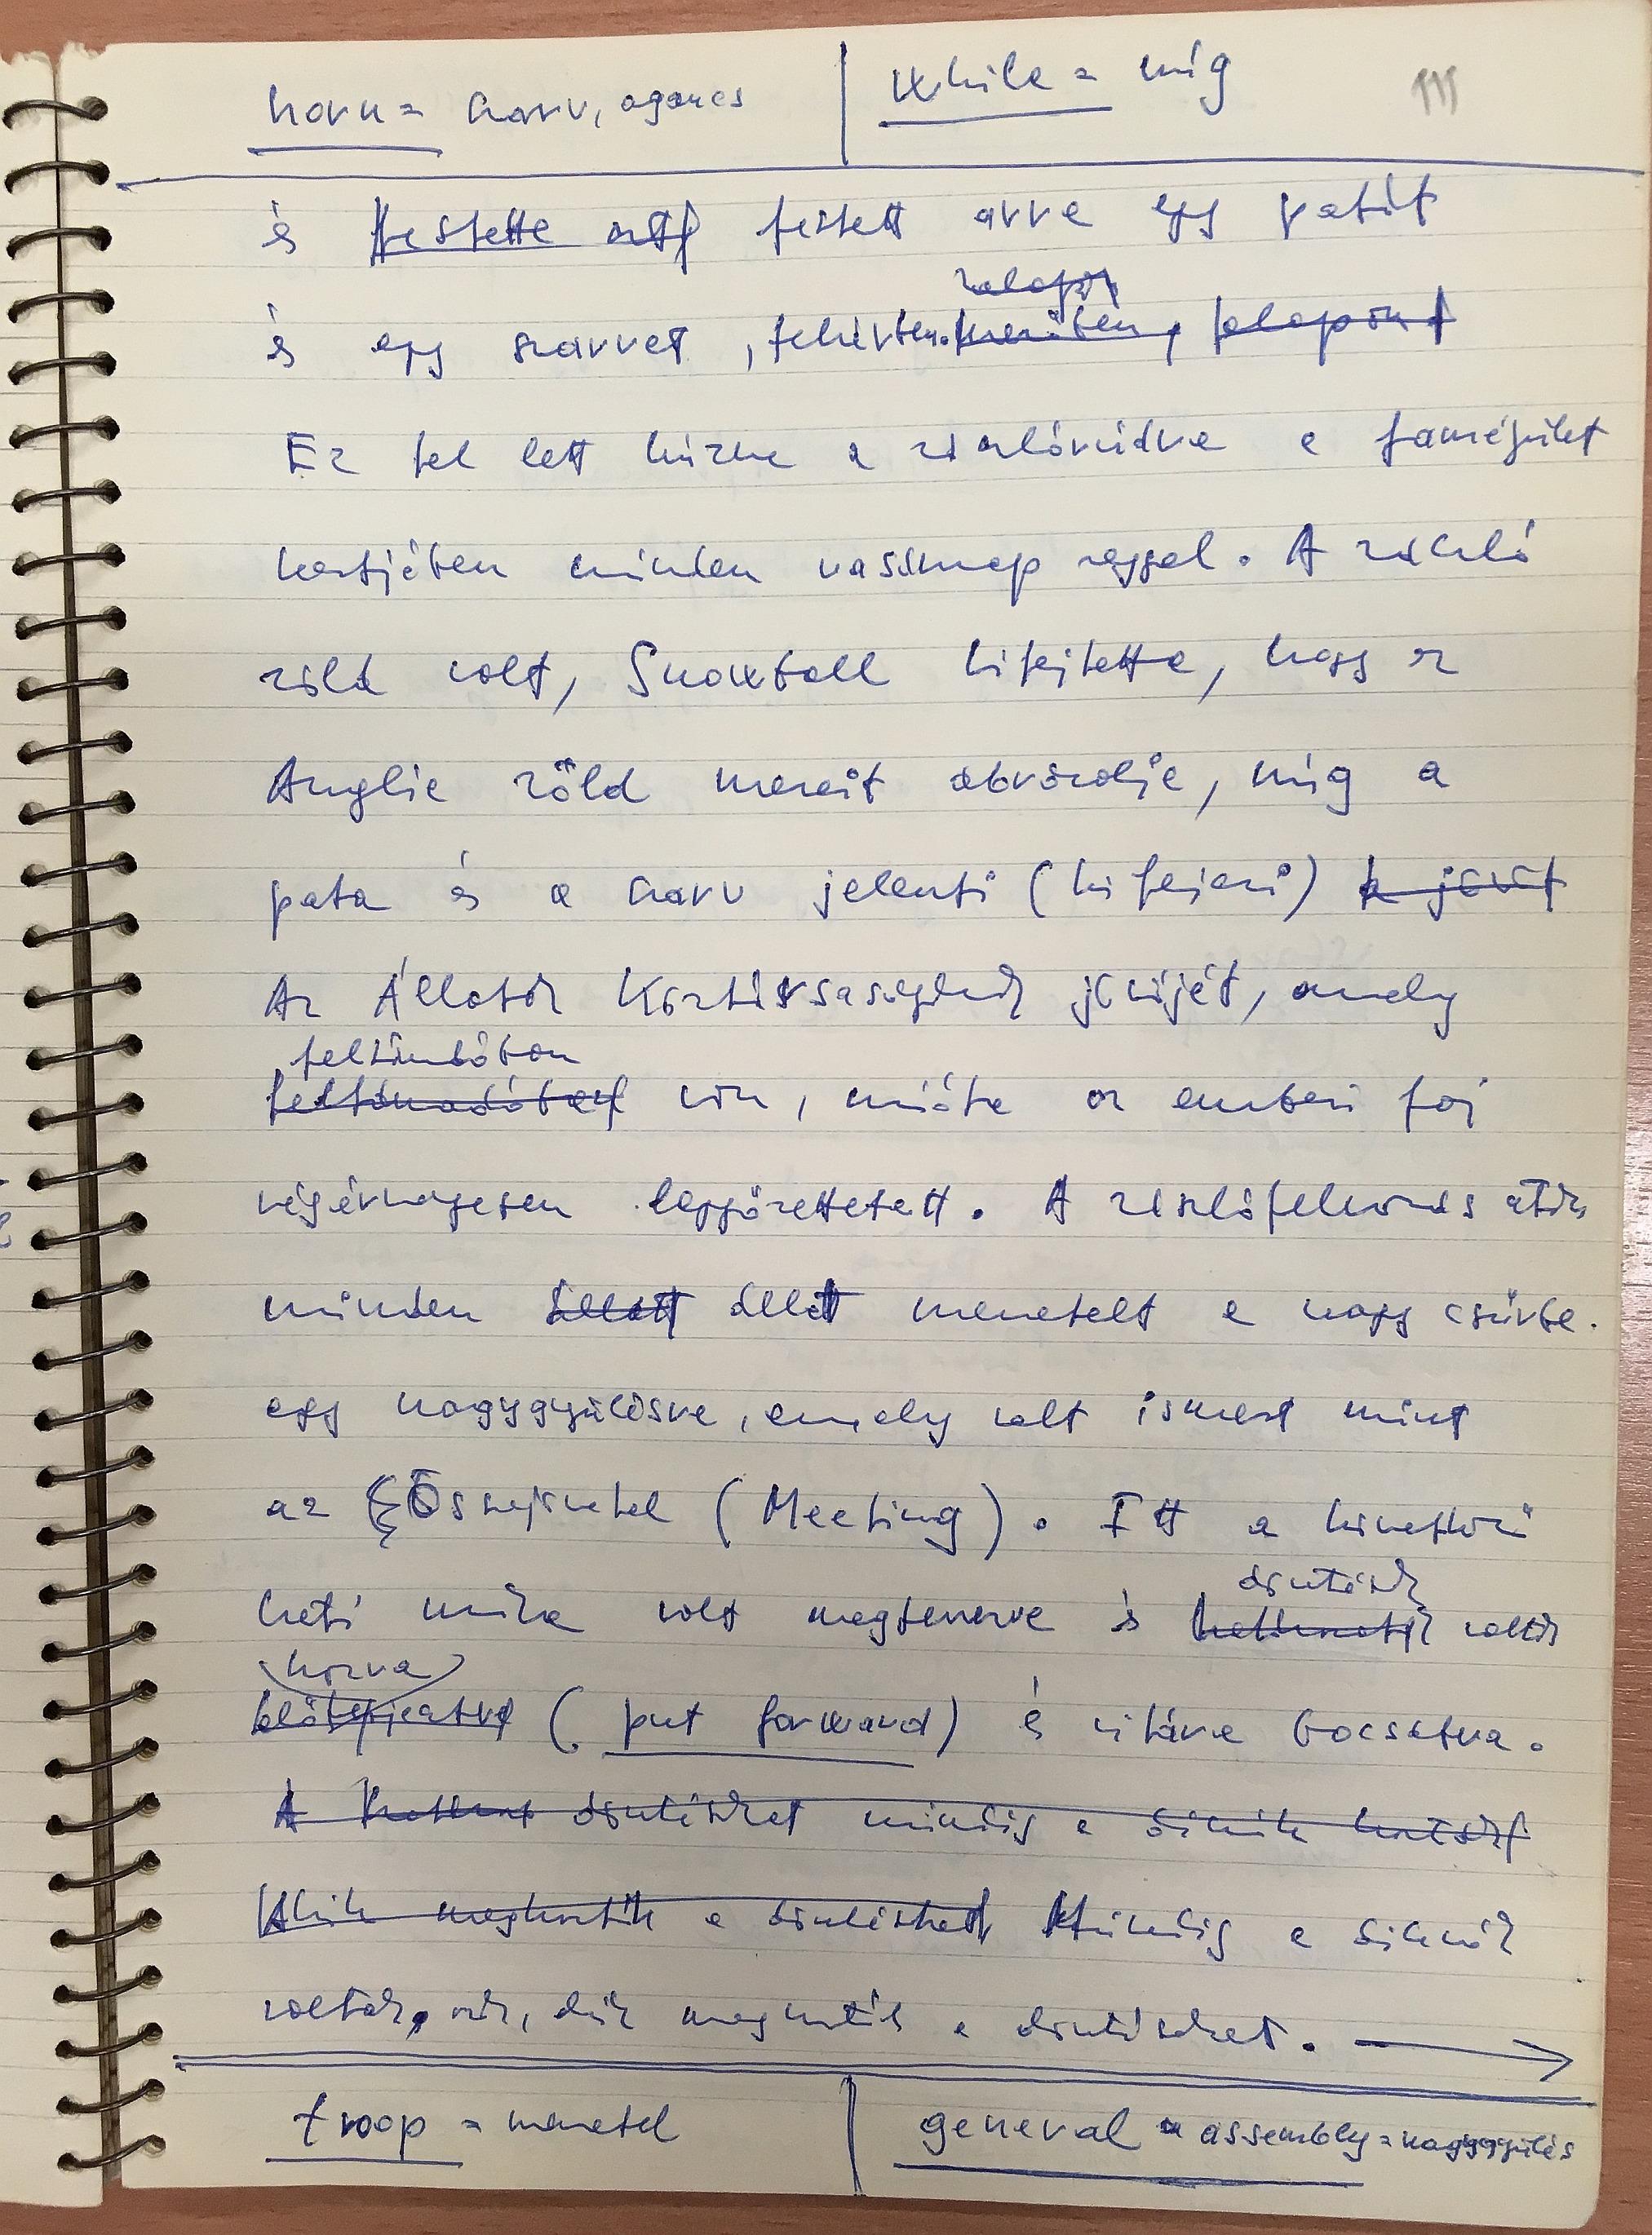 horn = szarv, agancs | while = míg
és festett arra egy patát
és egy szarvat, fehérben.
Ez fel lett húzva a zászlórúdra a farmépület
kertjében minden vasárnap reggel. A zászló
zöld volt, Snowball kifejtette, hogy ez
Anglia zöld mezeit ábrázolja, míg a
pata és a szarv jelenti (kifejezi) a jövőt
Az Állatok Köztársaságának jövőjét, amely
feltámadóban
van, mióta az emberi faj
végérvényesen legyőzettetett. A zászlófelvonás után
minden állat állat menetelt a nagy csűrbe.
egy nagygyűlésre, amely volt ismert mint
az Összejövetel (Meeting). Itt a következő
döntések
heti munka volt megtervezve és voltak
hozva
(put forward) és vitára bocsátva.
A döntéseket mindig a disznók hozták
Akik meghozták a döntéseket Mindig a disznók
voltak, ők, akik meghozták a döntéseket. →
troop = menetel | general assembly = nagygyűlés